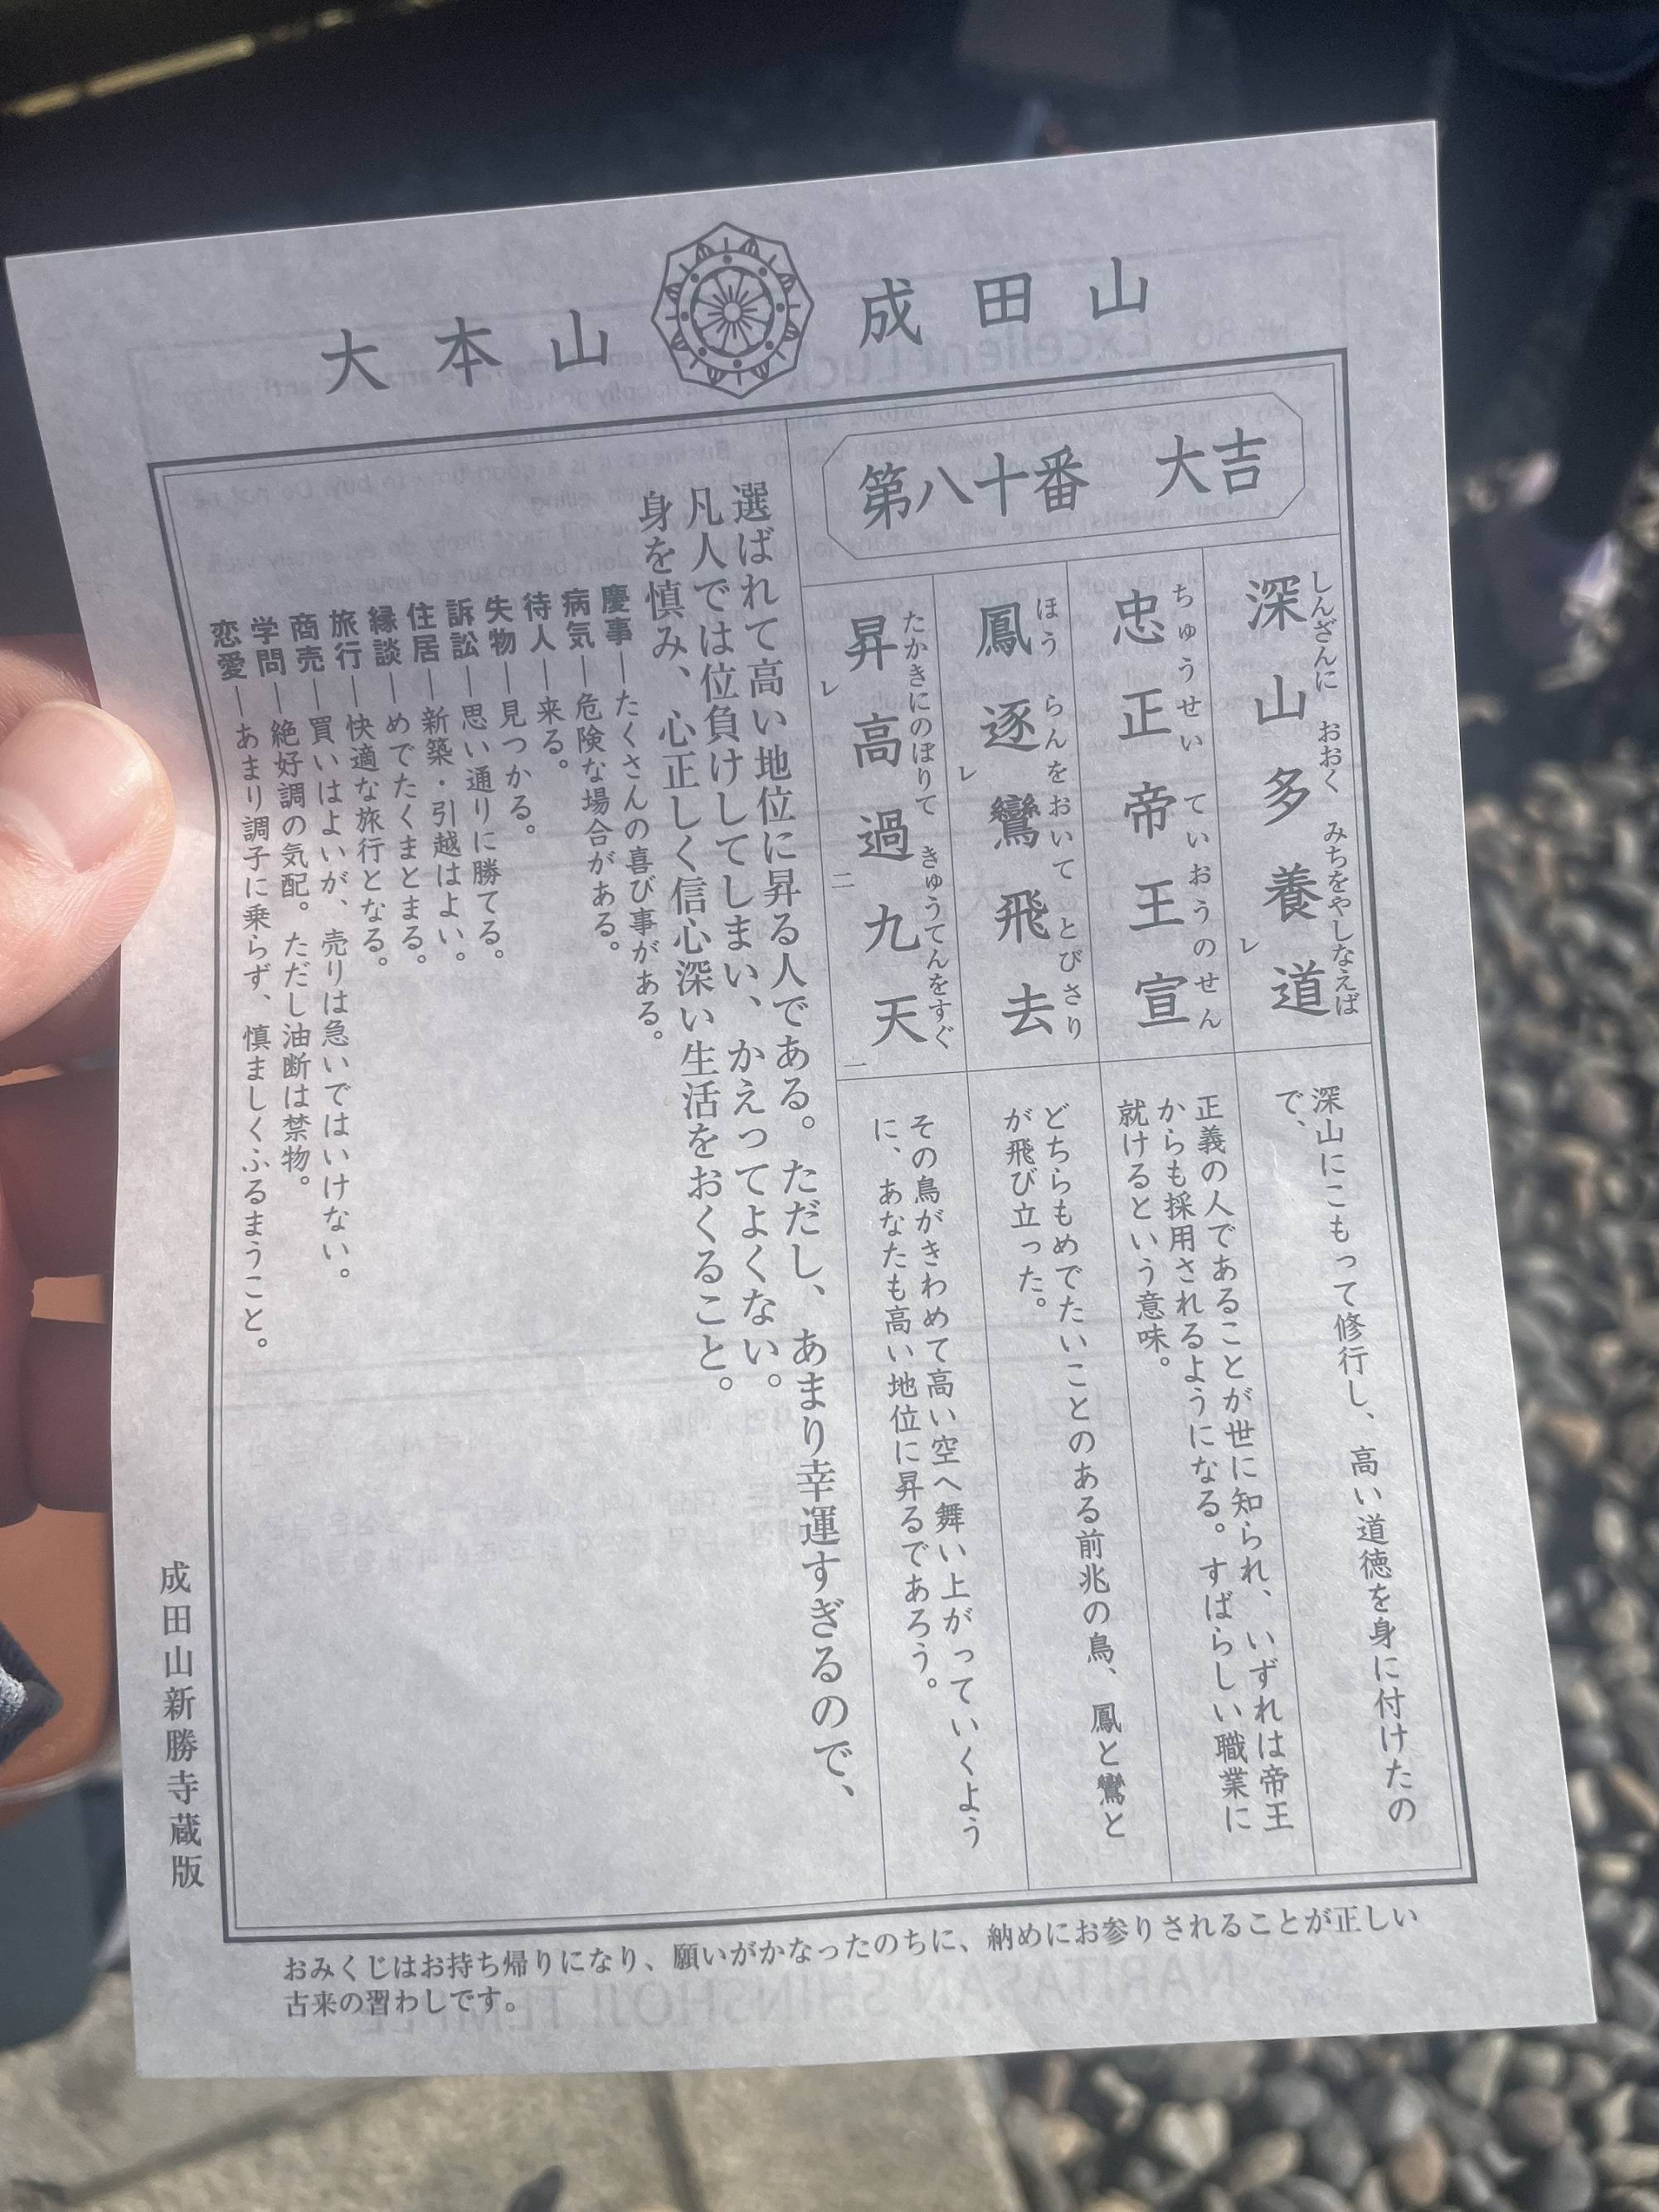 成田山
大本山
第八十番 大吉
深山多養道
しんざんに おおく みちをやしなえば
レ
忠正帝王宣
ちゅうせい ていおうのせん
鳳逐鸞飛去
ほう らんをおいて とびさり
レ
昇高過九天
たかきにのぼりて きゅうてんをすぐ
レ 二 一
深山にこもって修行し、高い道徳を身に付けたの
で、
正義の人であることが世に知られ、いずれは帝王
からも採用されるようになる。すばらしい職業に
就けるという意味。
どちらもめでたいことのある前兆の鳥、鳳と鸞と
が飛び立った。
その鳥がきわめて高い空へ舞い上がっていくよう
に、あなたも高い地位に昇るであろう。
選ばれて高い地位に昇る人である。ただし、あまり幸運すぎるので、
凡人では位負けしてしまい、かえってよくない。
身を慎み、心正しく信心深い生活をおくること。
慶事―たくさんの喜び事がある。
病気―危険な場合がある。
待人―来る。
失物―見つかる。
訴訟―思い通りに勝てる。
住居―新築・引越はよい。
縁談―めでたくまとまる。
旅行―快適な旅行となる。
商売―買いはよいが、売りは急いではいけない。
学問―絶好調の気配。ただし油断は禁物。
恋愛―あまり調子に乗らず、慎ましくふるまうこと。
成田山新勝寺蔵版
おみくじはお持ち帰りになり、願いがかなったのちに、納めにお参りされることが正しい
古来の習わしです。
No.80 Excellent Luck
NARITASAN SHINSHOJI TEMPLE